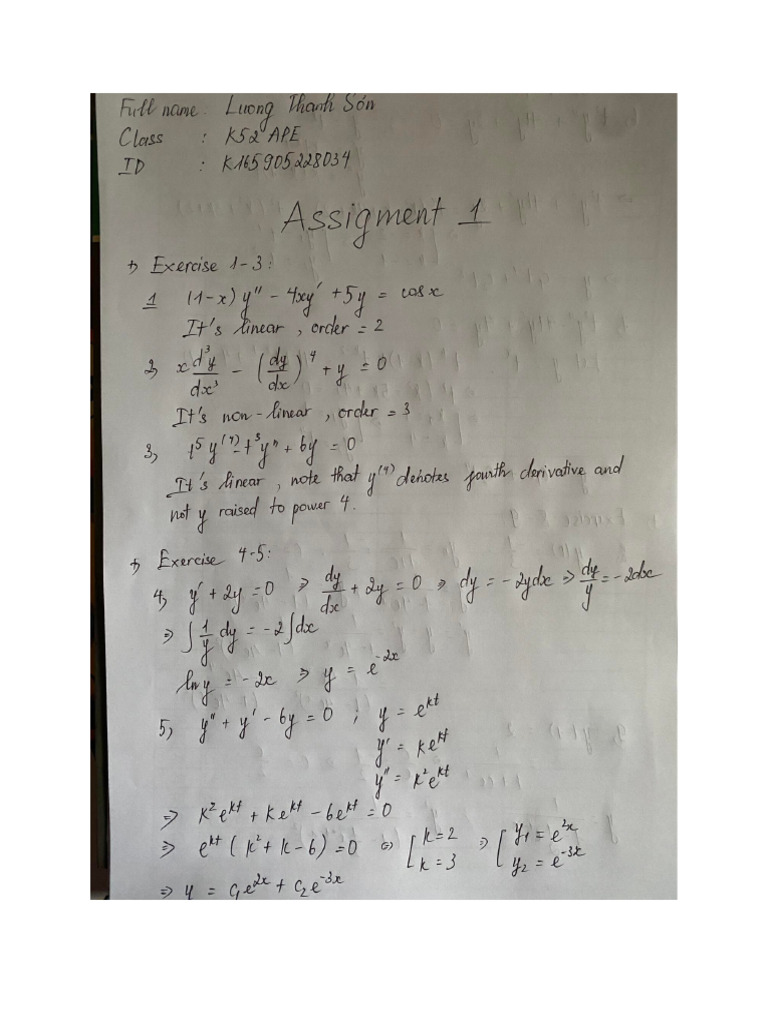 Full name: Luong Thanh Són
Class : K52 APE
ID : K165905228034
Assigment 1
+) Exercise 1-3:
1 (1-x) y" - 4xy' + 5y = cos x
It's linear, order = 2
2, x d³y/dx³ - (dy/dx)⁴ + y = 0
It's non-linear, order = 3
3, t⁵y⁽⁴⁾ - t³y" + 6y = 0
It's linear, note that y⁽⁴⁾ denotes fourth derivative and
not y raised to power 4.
+) Exercise 4-5:
4, y' + 2y = 0 => dy/dx + 2y = 0 => dy = -2ydx => dy/y = -2dx
=> ∫ 1/y dy = -2∫dx
ln y = -2x => y = e⁻²ˣ
5, y" + y' - 6y = 0 ; y = eᵏᵗ
y' = keᵏᵗ
y" = k²eᵏᵗ
=> k²eᵏᵗ + keᵏᵗ - 6eᵏᵗ = 0
=> eᵏᵗ (k² + k - 6) = 0 <=> [ k = 2 k = 3 => [ y₁ = e²ˣ y₂ = e⁻³ˣ
=> y = c₁e²ˣ + c₂e⁻³ˣ